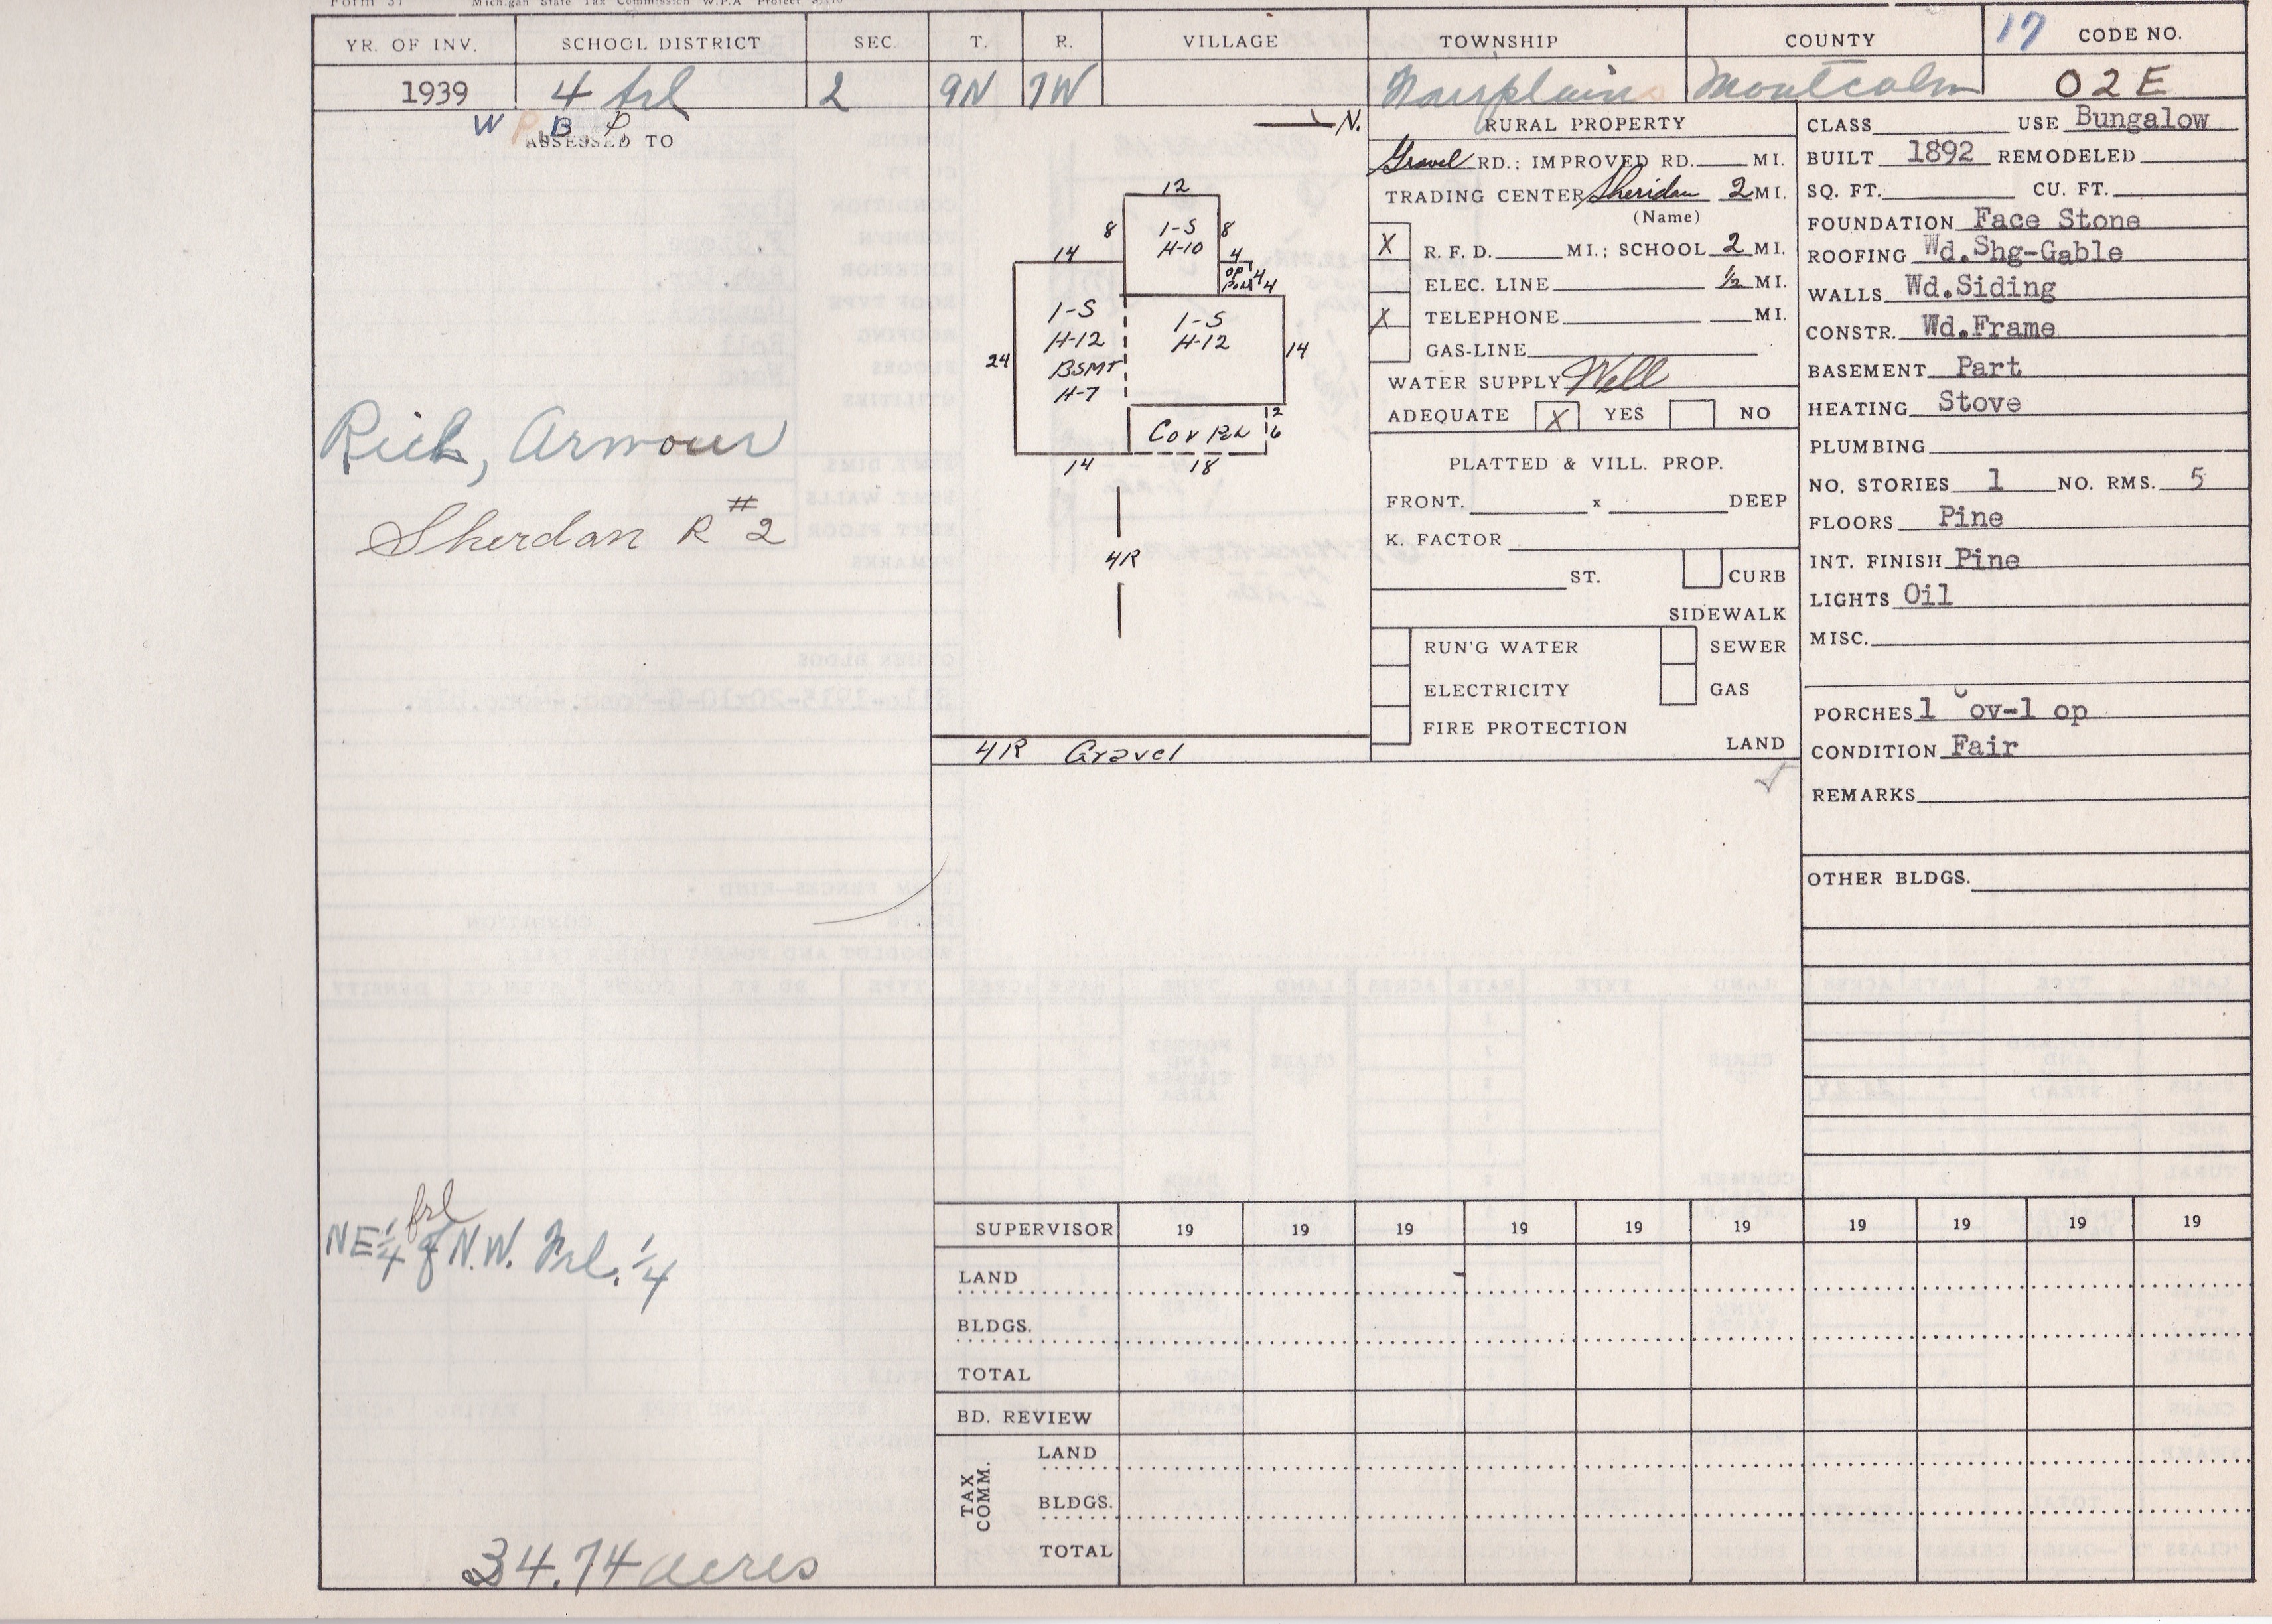 Form 37 Michigan State Tax Commission W.P.A Project
YR. OF INV. SCHOOL DISTRICT SEC. T. R. VILLAGE TOWNSHIP COUNTY 17 CODE NO.
1939 4 frl 2 9N 7W Montcalm 02E
W P B P
ASSESSED TO
Rich, Armour
Sherdan R #2
frl
NE 1/4 of N.W. Frl. 1/4
34.74 acres
N.
12
8 1-S 8
H-10
14 4
OP
Pch 4 4
1-S 1-S
H-12 H-12
24 BSMT 14
H-7
2
Cov Pch 6
14 18
4R
4R Gravel
RURAL PROPERTY
Gravel RD.; IMPROVED RD. MI.
TRADING CENTER Sheridan 2 MI.
(Name)
X R. F. D. MI.; SCHOOL 2 MI.
ELEC. LINE 1/2 MI.
X TELEPHONE MI.
GAS-LINE
WATER SUPPLY Well
ADEQUATE X YES NO
PLATTED & VILL. PROP.
FRONT. x DEEP
K. FACTOR
ST. CURB
SIDEWALK
RUN'G WATER SEWER
ELECTRICITY GAS
FIRE PROTECTION
LAND
CLASS USE Bungalow
BUILT 1892 REMODELED
SQ. FT. CU. FT.
FOUNDATION Face Stone
ROOFING Wd.Shg-Gable
WALLS Wd.Siding
CONSTR. Wd.Frame
BASEMENT Part
HEATING Stove
PLUMBING
NO. STORIES 1 NO. RMS. 5
FLOORS Pine
INT. FINISH Pine
LIGHTS Oil
MISC.
PORCHES 1 Cov-1 op
CONDITION Fair
REMARKS
OTHER BLDGS.
SUPERVISOR 19 19 19 19 19 19 19 19 19 19
LAND
BLDGS.
TOTAL
BD. REVIEW
TAX COMM.
LAND
BLDGS.
TOTAL